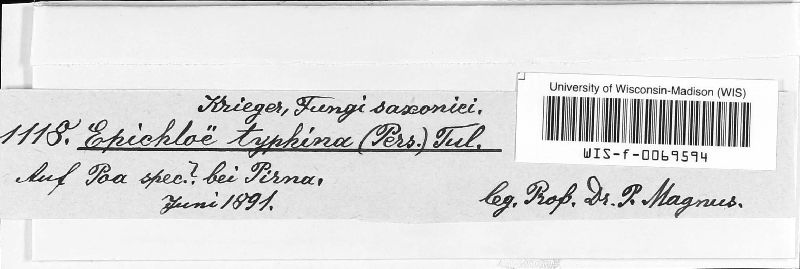 Krieger, Fungi saxonici.
University of Wisconsin-Madison (WIS)
WIS-f-0069594
1118. Epichloë typhina (Pers.) Tul.
Auf Poa spec? bei Pirna.
Juni 1891.
leg. Prof. Dr. P. Magnus.